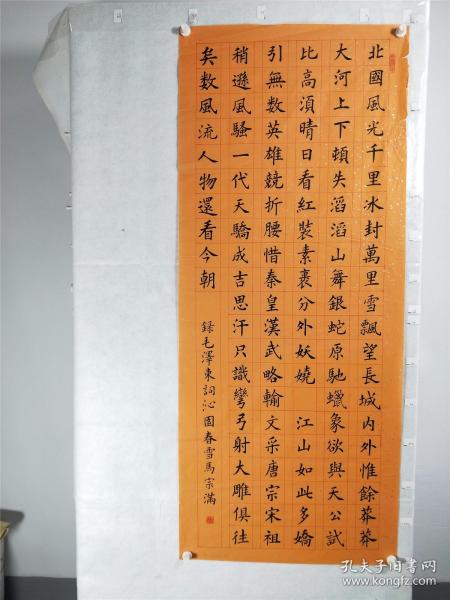 北國風光千里冰封萬里雪飄望長城内外惟餘莽莽
大河上下頓失滔滔山舞銀蛇原馳蠟象欲與天公試
比高須晴日看紅裝素裹分外妖嬈 江山如此多嬌
引無數英雄競折腰惜秦皇漢武略輸文采唐宗宋祖
稍遜風騷一代天驕成吉思汗只識彎弓射大雕俱往
矣数風流人物還看今朝
錄毛澤東詞沁園春雪馬宗滿
孔夫子旧书网
www.kongfz.com